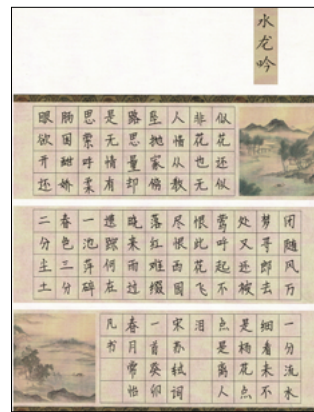 水龙吟
似花还似
非花也无
人惜从教
坠抛家傍
路思量却
是无情有
思萦损柔
肠困酣娇
眼欲开还
闭随风万
梦寻郎去
处又还被
莺呼起不
恨此花飞
尽恨西园
落红难缀
晓来雨过
遗踪何在
一池萍碎
春色三分
二分尘土
一分流水
细看来不
是杨花点
点是离人
泪
宋苏轼词
一首癸卯
春月常怡
凡书